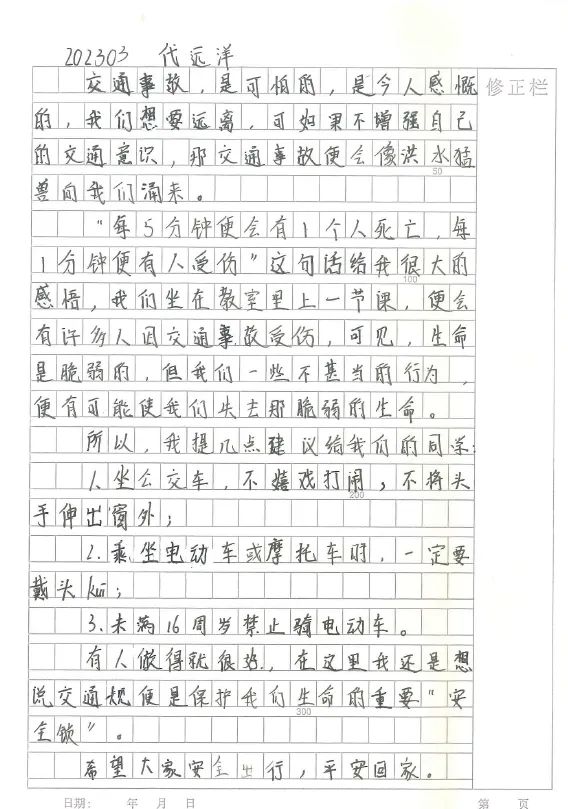 202303 代远洋
交通事故，是可怕的，是今人感慨
修正栏
的，我们想要远离，可如果不增强自己
的交通意识，那交通事故便会像洪水猛
50
兽向我们涌来。
“每5分钟便会有1个人死亡，每
1分钟便有人受伤”这句话给我很大的
100
感悟，我们坐在教室里上一节课，便会
有许多人因交通事故受伤，可见，生命
是脆弱的，但我们一些不甚当的行为，
便有可能使我们失去那脆弱的生命。
所以，我提几点建议给我们的同学：
1.坐公交车，不嬉戏打闹，不将头
200
手伸出窗外；
2.乘坐电动车或摩托车时，一定要
戴头kui；
3.未满16周岁禁止骑电动车。
有人做得就很好，在这里我还是想
说交通规便是保护我们生命的重要“安
300
全锁”。
希望大家安全出行，平安回家。
日期： 年 月 日 第 页